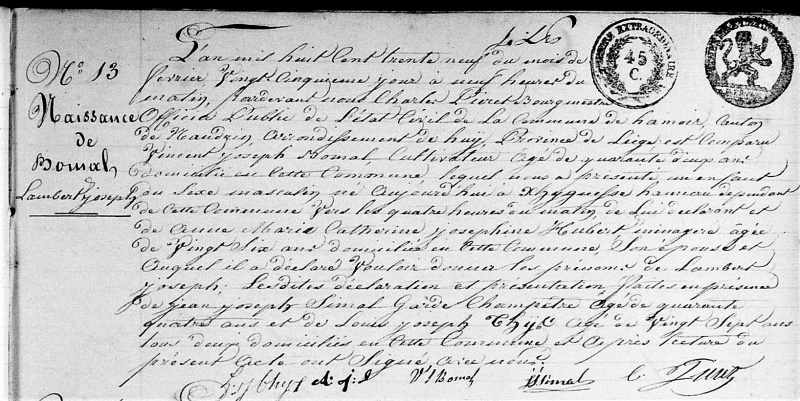 N.º 13
Naissance
de
Bomal
Lambert Joseph
L'an mil huit Cent trente neuf du mois de
fevrier Vingt Cinquieme jour à neuf heures du
matin, Pardevant nous Charles Bourgmestre
Officier Public de l'état Civil de La Commune de hamoir, Canton
de Nandrin, arrondissement de huy, Province de Liége est Comparu
Vincent joseph Bomal, Cultivateur agé de quarante deux ans
domicilié en Cette Commune, lequel nous a présenté un enfant
du Sexe masculin né aujourd'hui à Xhygnesse hameau dependant
de Cette Commune Vers les quatre heures du matin de Lui declarant et
de anne Marie Catherine josephine Hubert menagere agée
de Vingt Six ans domiciliée en Cette Commune, Son épouse et
auquel il a déclaré Vouloir donner les prénoms de Lambert
joseph; Lesdites déclaration et présentation, faites en présence
de jean joseph Simal Garde Champetre agé de quarante
quatre ans et de Louis joseph Thijs agé de Vingt Sept ans
tous deux domiciliés en Cette Commune et après lecture du
présent acte ont Signé avec nous
V J Bomal JJSimal C.
45
C.
EXTRAORDINAIRE